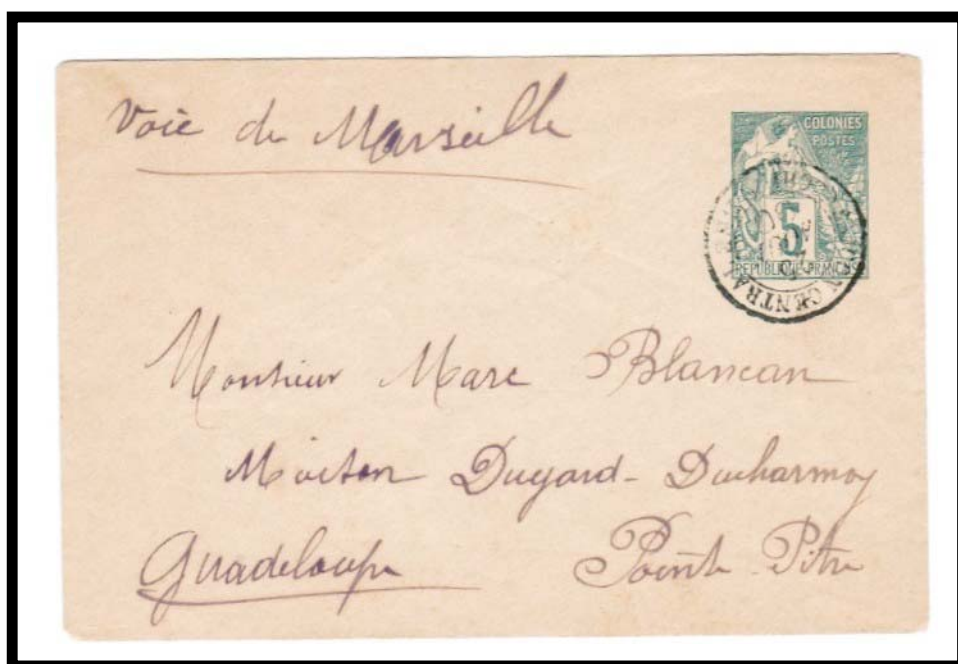 Voie de Marseille
COLONIES
POSTES
5
REPUBLIQUE FRANCSE
CENTRAL
Monsieur Marc Blancan
Maison Dugard-Ducharmoy
Guadeloupe Pointe-Pitre